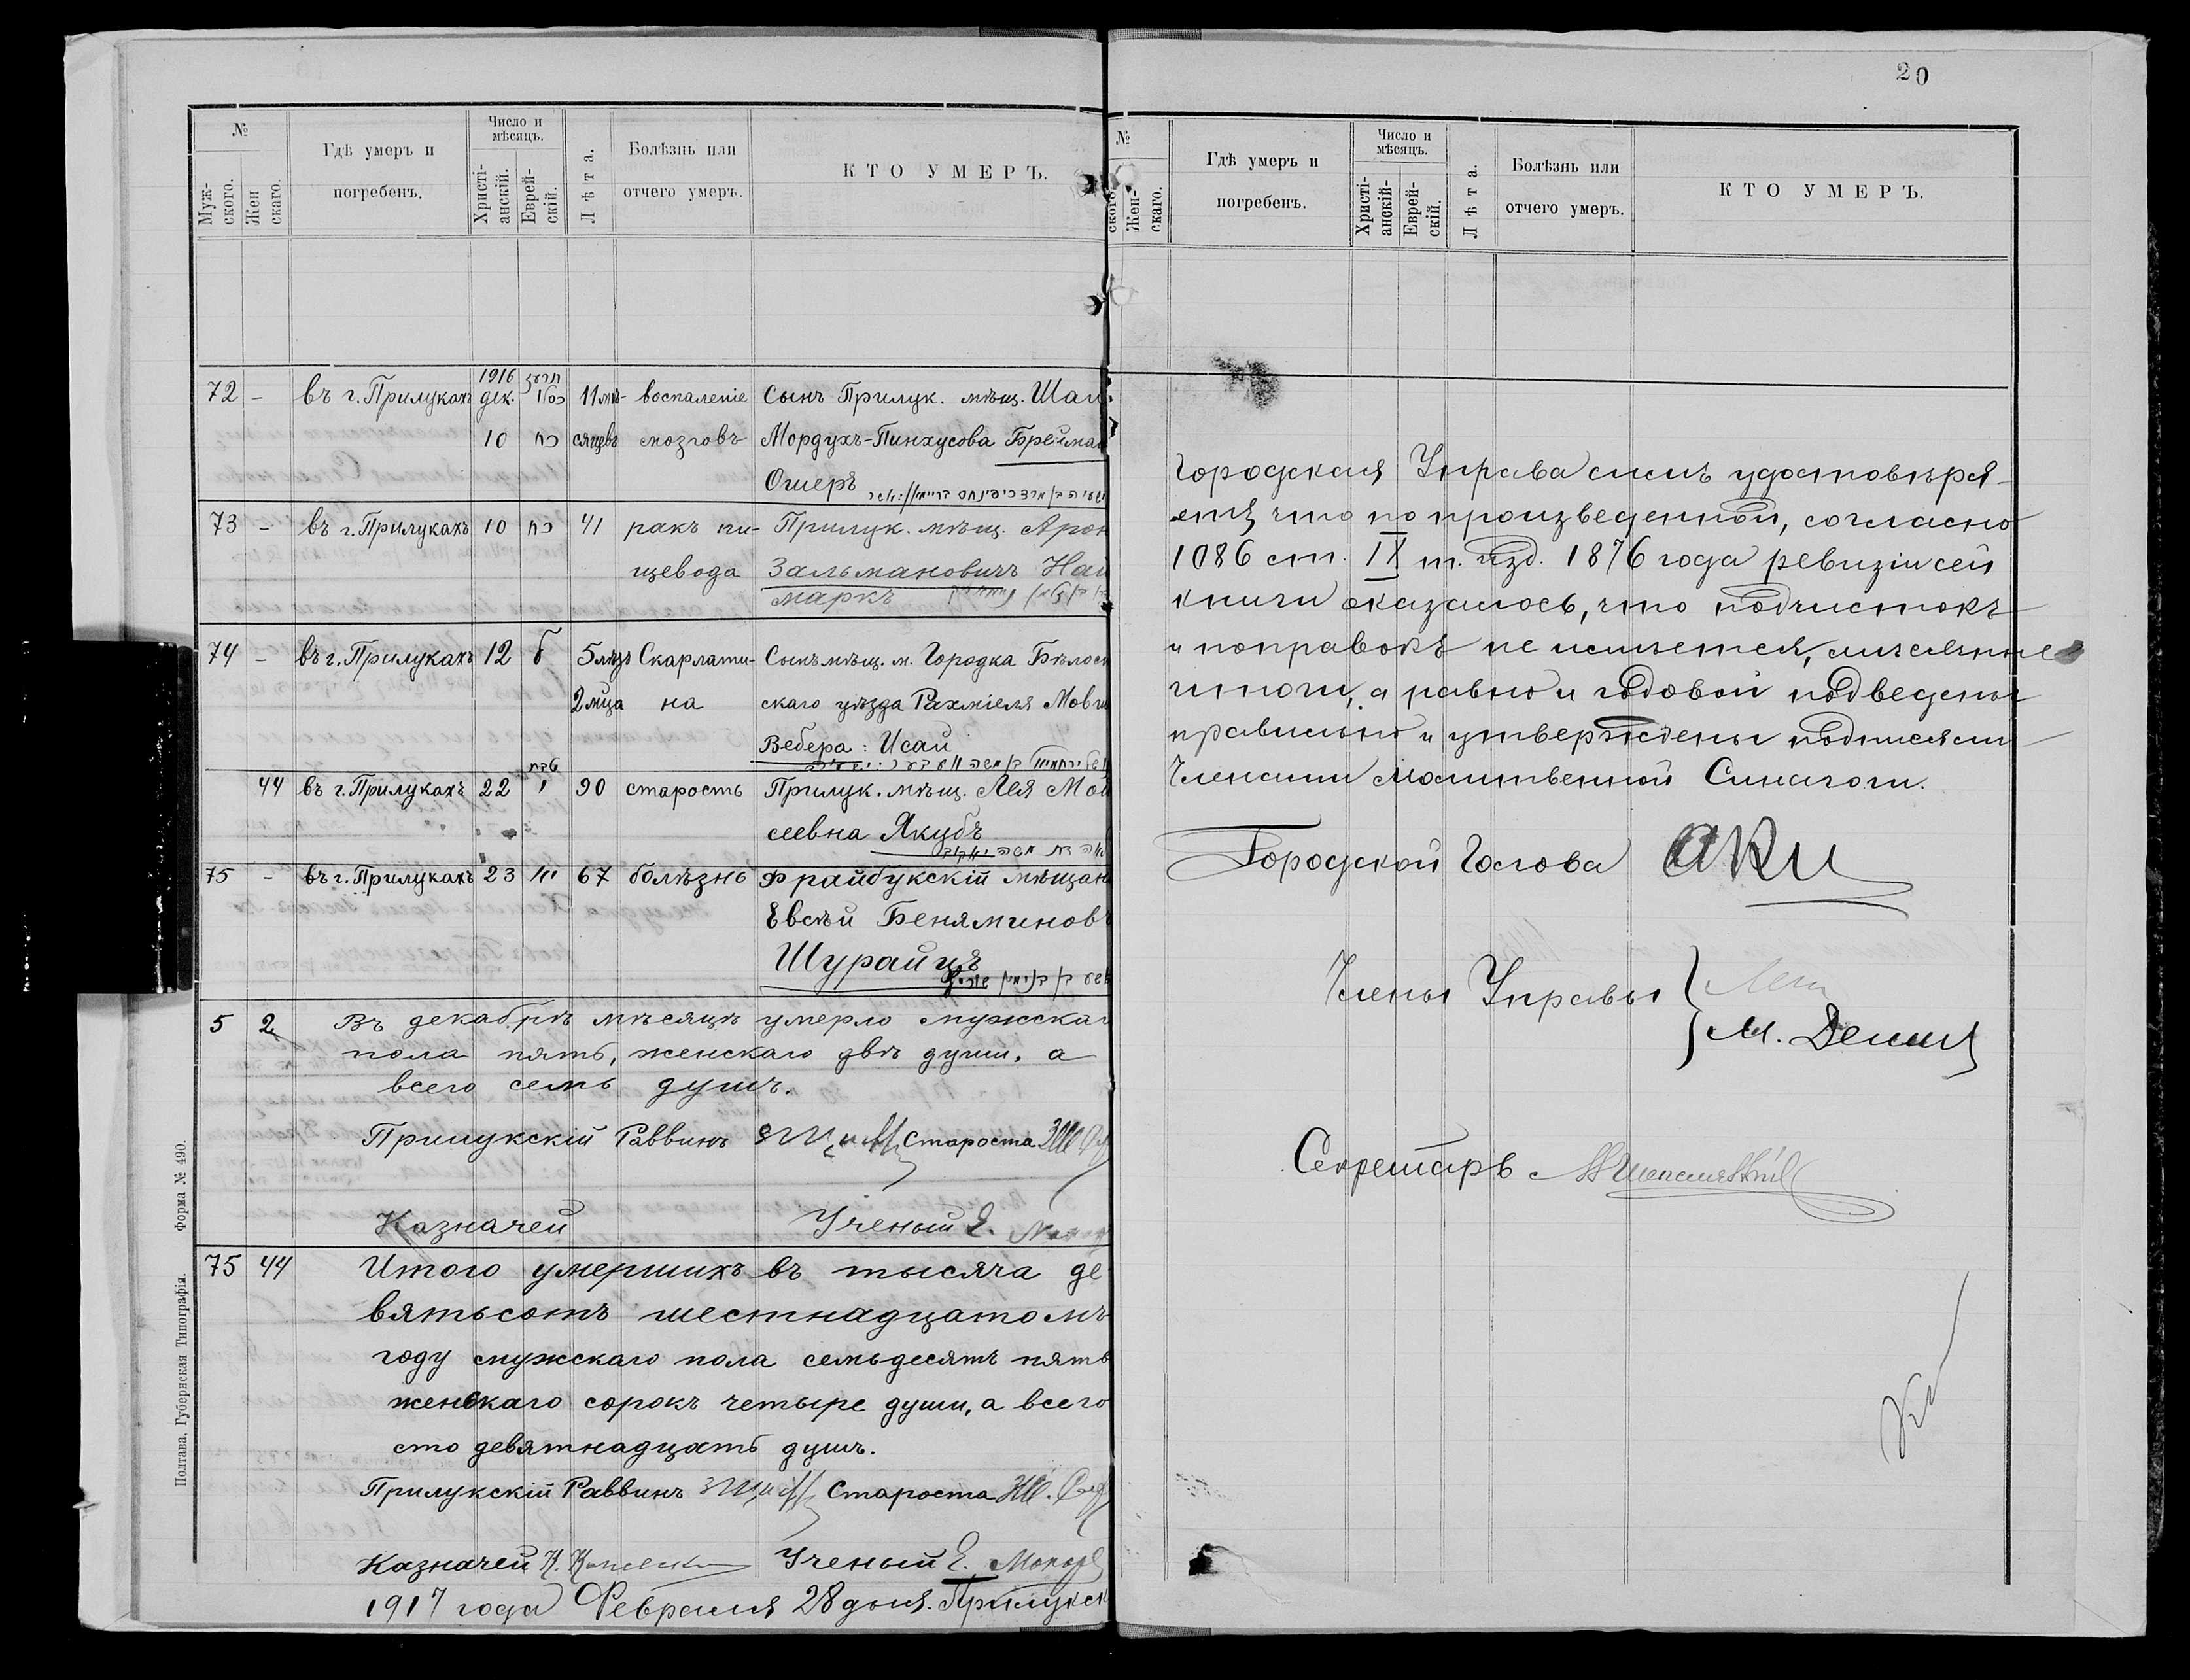 20
№
Муж-
ского.
Жен
скаго.
Гдѣ умеръ и
погребенъ.
Число и
мѣсяцъ.
Христі-
анскій.
Еврей-
скій.
Лѣта.
Болѣзнь или
отчего умеръ.
КТО УМЕРЪ.
72 - въ г. Прилукахъ 1916 дек. 11 мѣ- воспаленіе Сынъ Прилук. мѣщ. Шаи
10 כח сяцевъ мозговъ Мордухъ-Пинхусова Брейман
Ошеръ
73 - въ г. Прилукахъ 10 כח 41 ракъ пи- Прилук. мѣщ. Арон
щевода Зальмановичъ Най
маркъ
74 - въ г. Прилукахъ 12 5 лѣтъ Скарлати- Сынъ мѣщ. м. Городка Бѣлост
2 мца на скаго уѣзда Рахміеля Мовш
Вебера: Исай
טבת
44 въ г. Прилукахъ 22 90 старость Прилук. мѣщ. Лея Мои
сеевна Якубъ
75 - въ г. Прилукахъ 23 67 болѣзнь Фрайбукскій мѣщан
Евсѣй Беняминовъ
Шурайцъ
5 2 Въ декабрѣ мѣсяцѣ умерло мужскаг
пола пять, женскаго двѣ души, а
всего семь душъ.
Прилукскій Раввинъ Староста
Казначей Ученый Е.
75 44 Итого умершихъ въ тысяча де
вятьсотъ шестнадцатомъ
году мужскаго пола семьдесятъ пять
женскаго сорокъ четыре души, а всего
сто девятнадцать душъ.
Прилукскій Раввинъ Староста
Казначей Ученый Е.
1917 года Февраля 28 дня. Прилукск
Полтава, Губернская Типографія. Форма № 490.
№
ского.
Жен-
скаго.
Гдѣ умеръ и
погребенъ.
Число и
мѣсяцъ.
Христі-
анскій-
Еврей-
скій.
Лѣта.
Болѣзнь или
отчего умеръ.
КТО УМЕРЪ.
Городская Управа симъ удостовѣря-
етъ что по произведенной, согласно
1086 ст. IX т. изд. 1876 года ревизіи сей
книги оказалось, что подчистокъ
и поправокъ не имѣется, мѣсячные
итоги, а равно и годовой подведены
правильно и утверждены подписями
Членами молитвенной Синагоги.
Городской Голова
Члены Управы
М.
Секретарь